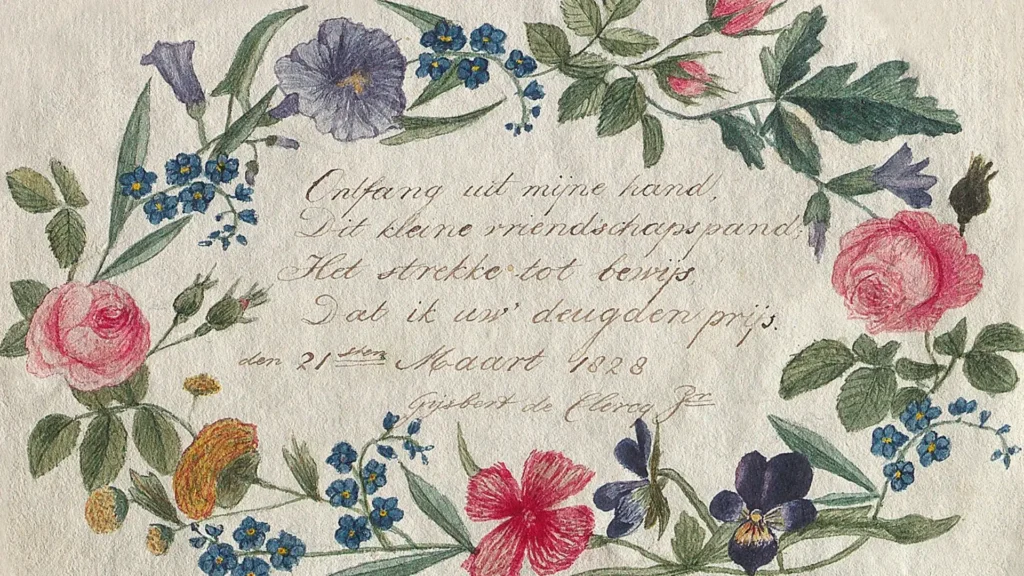 Ontfang uit mijne hand,
Dit kleine vriendschapspand;
Het strekke tot bewijs,
Dat ik uw' deugden prijs.
den 21sten Maart 1828
Gijsbert de Clercq Pr